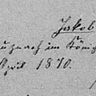 Jakob
im König
April 1870.